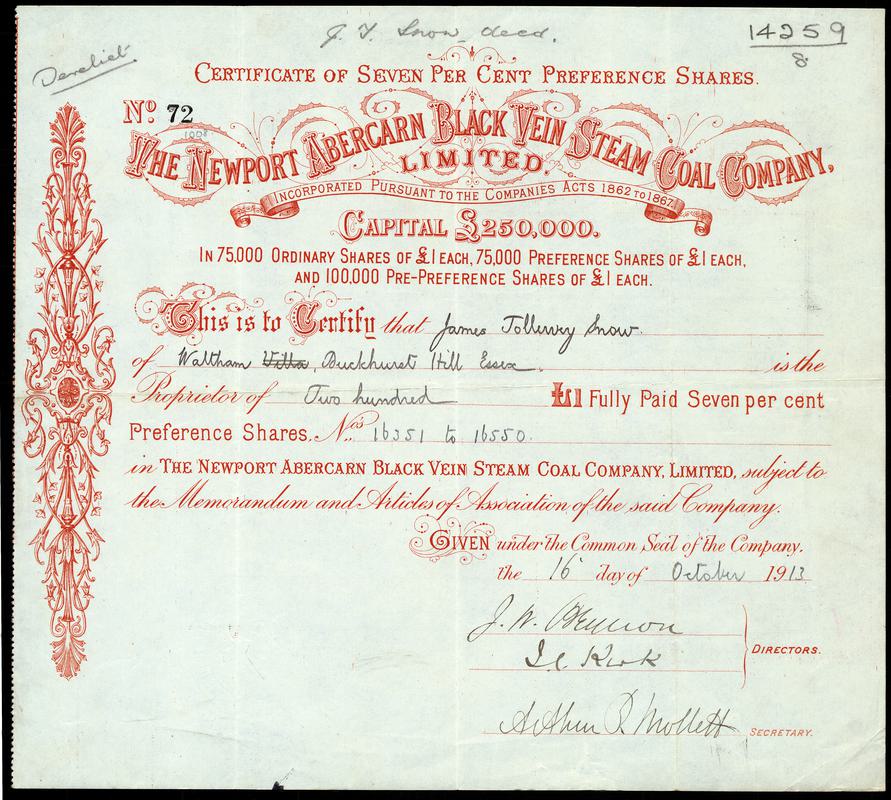 J. T. Snow decd.
14259
8
Derelict
CERTIFICATE OF SEVEN PER CENT PREFERENCE SHARES.
No. 72
1008
THE NEWPORT ABERCARN BLACK VEIN STEAM COAL COMPANY,
LIMITED.
INCORPORATED PURSUANT TO THE COMPANIES ACTS 1862 TO 1867.
CAPITAL £250,000.
IN 75,000 ORDINARY SHARES OF £1 EACH, 75,000 PREFERENCE SHARES OF £1 EACH,
AND 100,000 PRE-PREFERENCE SHARES OF £1 EACH.
This is to Certify that James Tollervey Snow.
of Waltham Villa, Buckhurst Hill Essex. is the
Proprietor of Two hundred £1 Fully Paid Seven per cent
Preference Shares, Nos. 16351 to 16550.
in THE NEWPORT ABERCARN BLACK VEIN STEAM COAL COMPANY, LIMITED, subject to
the Memorandum and Articles of Association of the said Company.
GIVEN under the Common Seal of the Company,
the 16 day of October 1913
J. W. Beynon
Kirk
DIRECTORS.
Arthur P. Mollett SECRETARY.